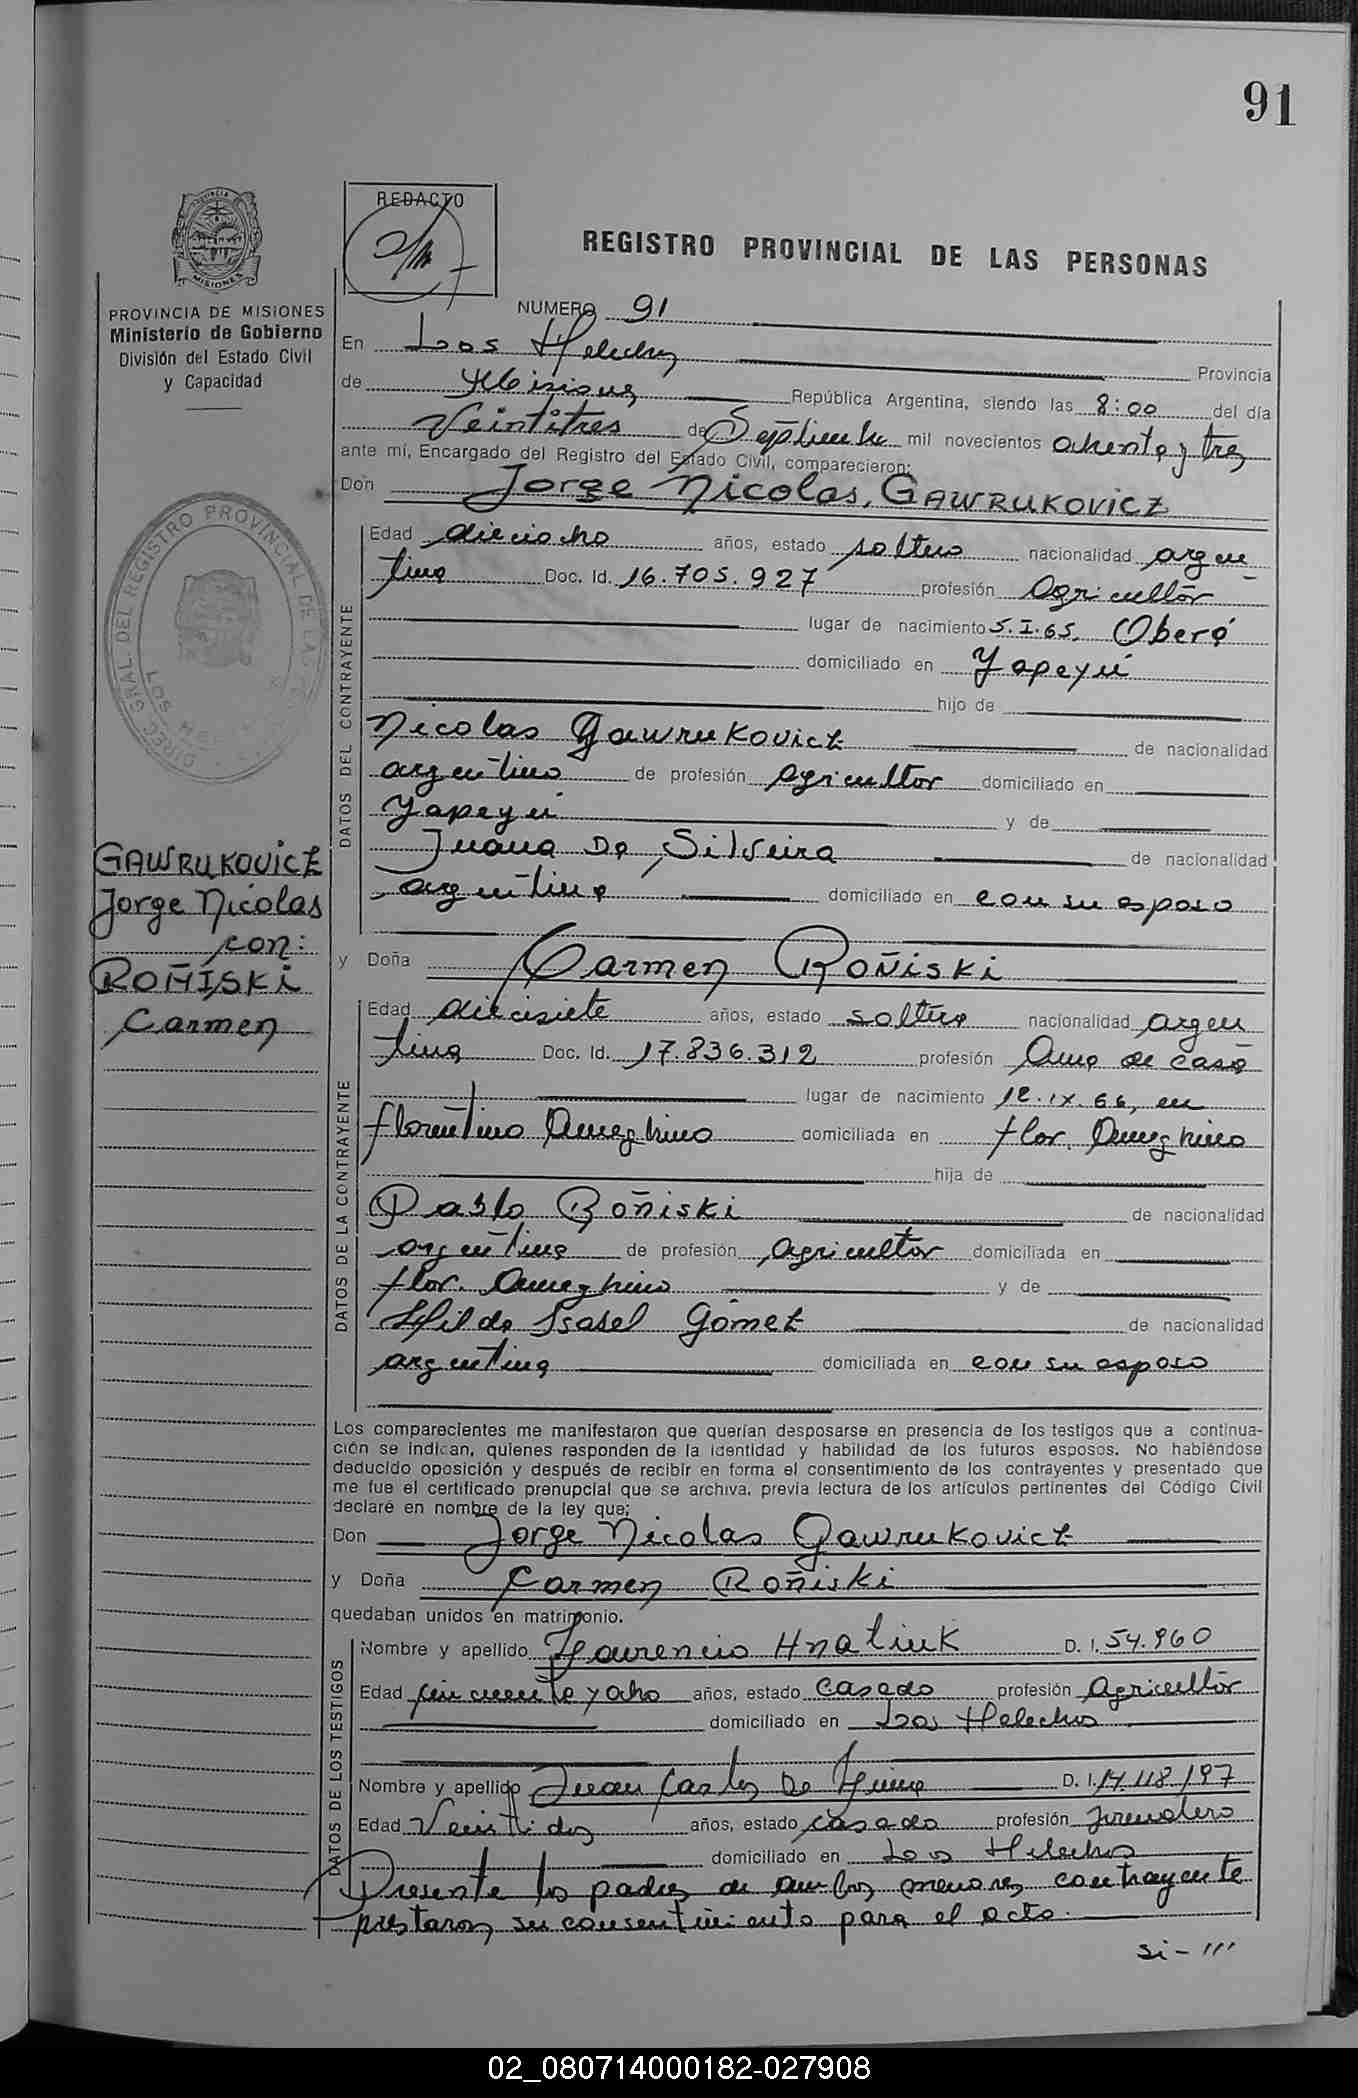 91
REDACTO
REGISTRO PROVINCIAL DE LAS PERSONAS
PROVINCIA DE MISIONES
Ministerio de Gobierno
División del Estado Civil
y Capacidad
NUMERO 91
En Los Helechos Provincia
de Misiones República Argentina, siendo las 8:00 del día
Veintitres de Septiembre mil novecientos ochenta y tres
ante mí, Encargado del Registro del Estado Civil, comparecieron:
Don Jorge Nicolas, GAWRUKOVICZ
DATOS DEL CONTRAYENTE
Edad dieciocho años, estado soltero nacionalidad argen
tina Doc. Id. 16.705.927 profesión Agricultor
lugar de nacimiento 5.I.65. Oberá
domiciliado en Yapeyú
hijo de
Nicolas Gawrukovicz de nacionalidad
argentino de profesión Agricultor domiciliado en
Yapeyú y de
Juana Da Silveira de nacionalidad
argentina domiciliado en con su esposo
GAWRUKOVICZ
Jorge Nicolas
con:
ROÑISKI
Carmen
y Doña Carmen ROÑISKI
DATOS DE LA CONTRAYENTE
Edad diecisiete años, estado soltera nacionalidad argen
tina Doc. Id. 17.836.312 profesión Ama de casa
lugar de nacimiento 12.IX.66, en
Florentino Ameghino domiciliada en Flor. Ameghino
hija de
Pablo Roñiski de nacionalidad
argentino de profesión Agricultor domiciliada en
Flor. Ameghino y de
Hilda Isabel Gómez de nacionalidad
argentina domiciliada en con su esposo
Los comparecientes me manifestaron que querían desposarse en presencia de los testigos que a continua-
ción se indican, quienes responden de la identidad y habilidad de los futuros esposos. No habiéndose
deducido oposición y después de recibir en forma el consentimiento de los contrayentes y presentado que
me fue el certificado prenupcial que se archiva, previa lectura de los artículos pertinentes del Código Civil
declaré en nombre de la ley que;
Don Jorge Nicolas Gawrukovicz
y Doña Carmen Roñiski
quedaban unidos en matrimonio.
DATOS DE LOS TESTIGOS
Nombre y apellido Laurencio Hnatiuk D. I. 54.960
Edad cincuenta y ocho años, estado casado profesión Agricultor
domiciliado en Los Helechos
Nombre y apellido Juan Carlos De Lima D. I. 14.118.197
Edad Veintidos años, estado casado profesión Jornalero
domiciliado en Los Helechos
Presente los padres de ambos menores contrayente
prestaron su consentimiento para el acto.
si-///
02_080714000182-027908